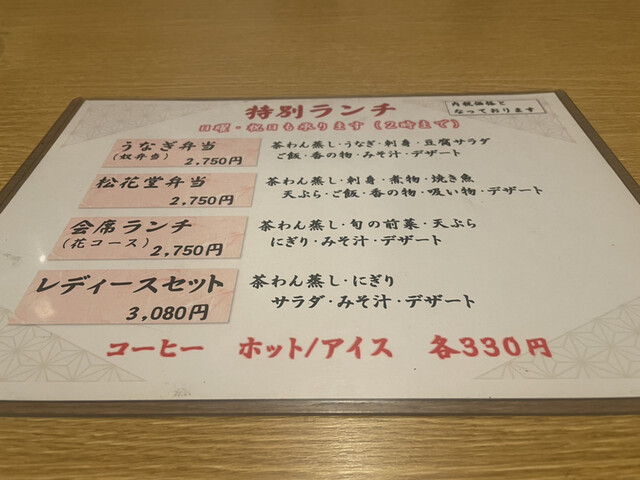 特別ランチ
内税価格と
なっております
日曜・祝日も承ります(2時まで)
うなぎ弁当
(奴弁当) 2,750円
茶わん蒸し・うなぎ・刺身・豆腐サラダ
ご飯・香の物・みそ汁・デザート
松花堂弁当
2,750円
茶わん蒸し・刺身・煮物・焼き魚
天ぷら・ご飯・香の物・吸い物・デザート
会席ランチ
(花コース) 2,750円
茶わん蒸し・旬の前菜・天ぷら
にぎり・みそ汁・デザート
レディースセット
3,080円
茶わん蒸し・にぎり
サラダ・みそ汁・デザート
コーヒー ホット/アイス 各330円